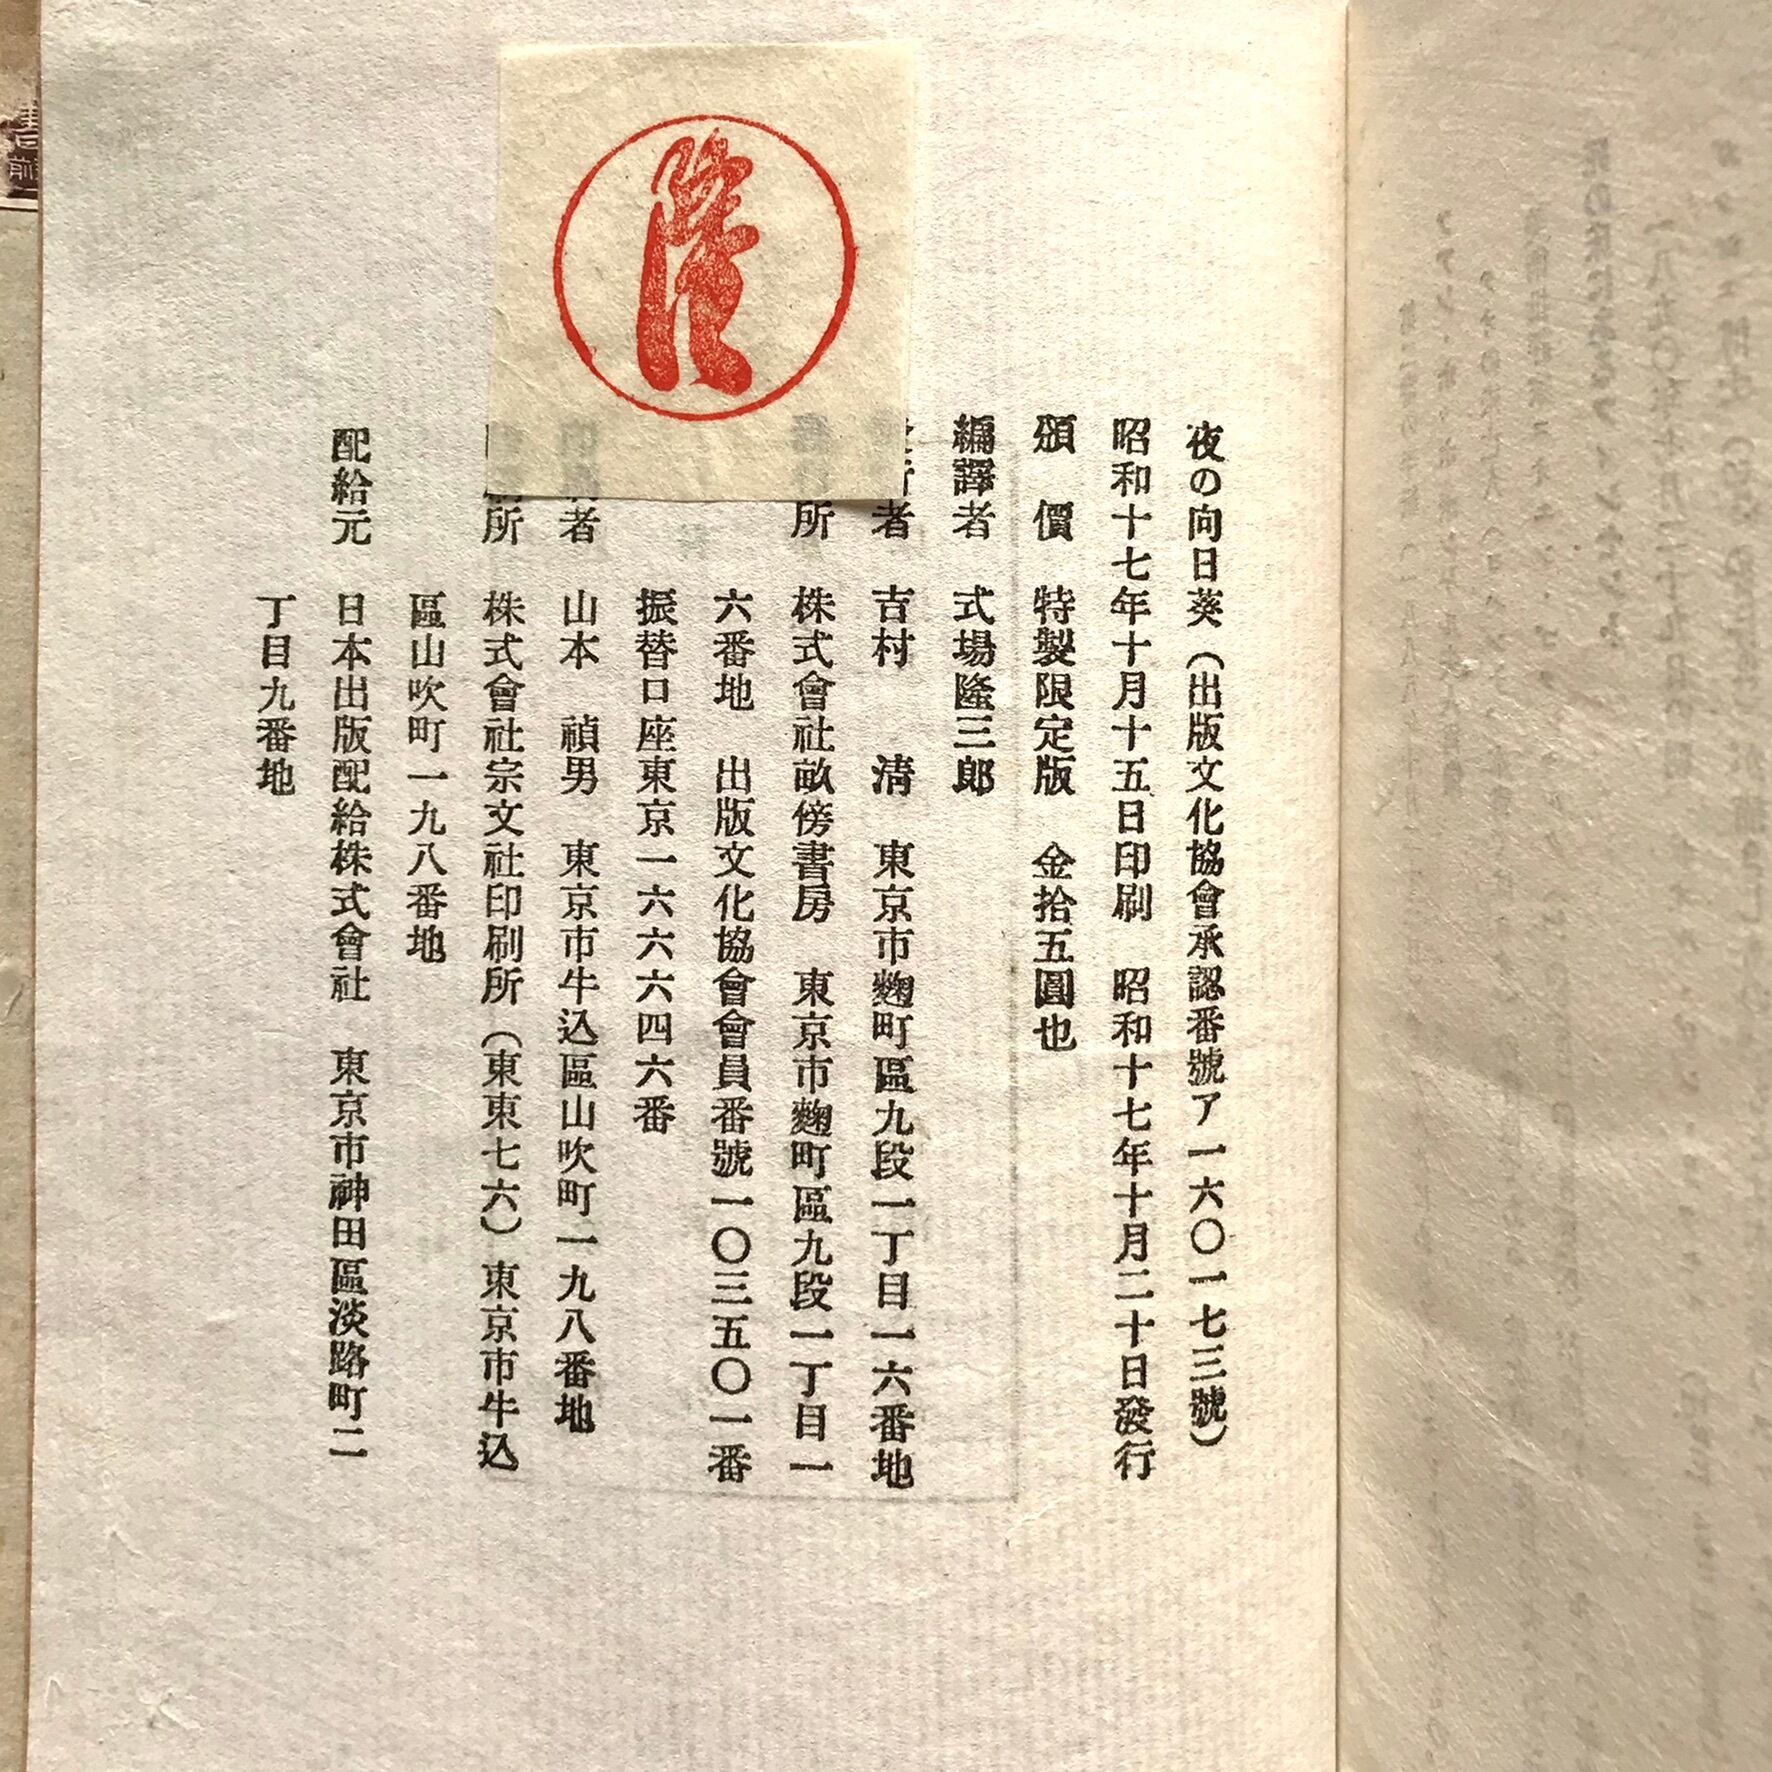 夜の向日葵（出版文化協會承認番號ア一六〇一七三號）
昭和十七年十月十五日印刷　昭和十七年十月二十日發行
頒　價　特製限定版　金拾五圓也
編譯者　式場隆三郎
者　吉村　清　東京市麴町區九段一丁目一六番地
所　株式會社畝傍書房　東京市麴町區九段一丁目一
六番地　出版文化協會會員番號一〇三五〇一番
振替口座東京一六六六四六番
者　山本　禎男　東京市牛込區山吹町一九八番地
所　株式會社宗文社印刷所（東東七六）東京市牛込
區山吹町一九八番地
配給元　日本出版配給株式會社　東京市神田區淡路町二
丁目九番地
隆